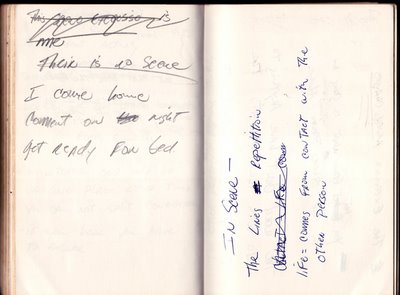 This is
me
Their is no Scene
I come home
Comment on the night
get Ready for bed
In Scene —
The Lines Repetition
life = comes from contact with the
other person